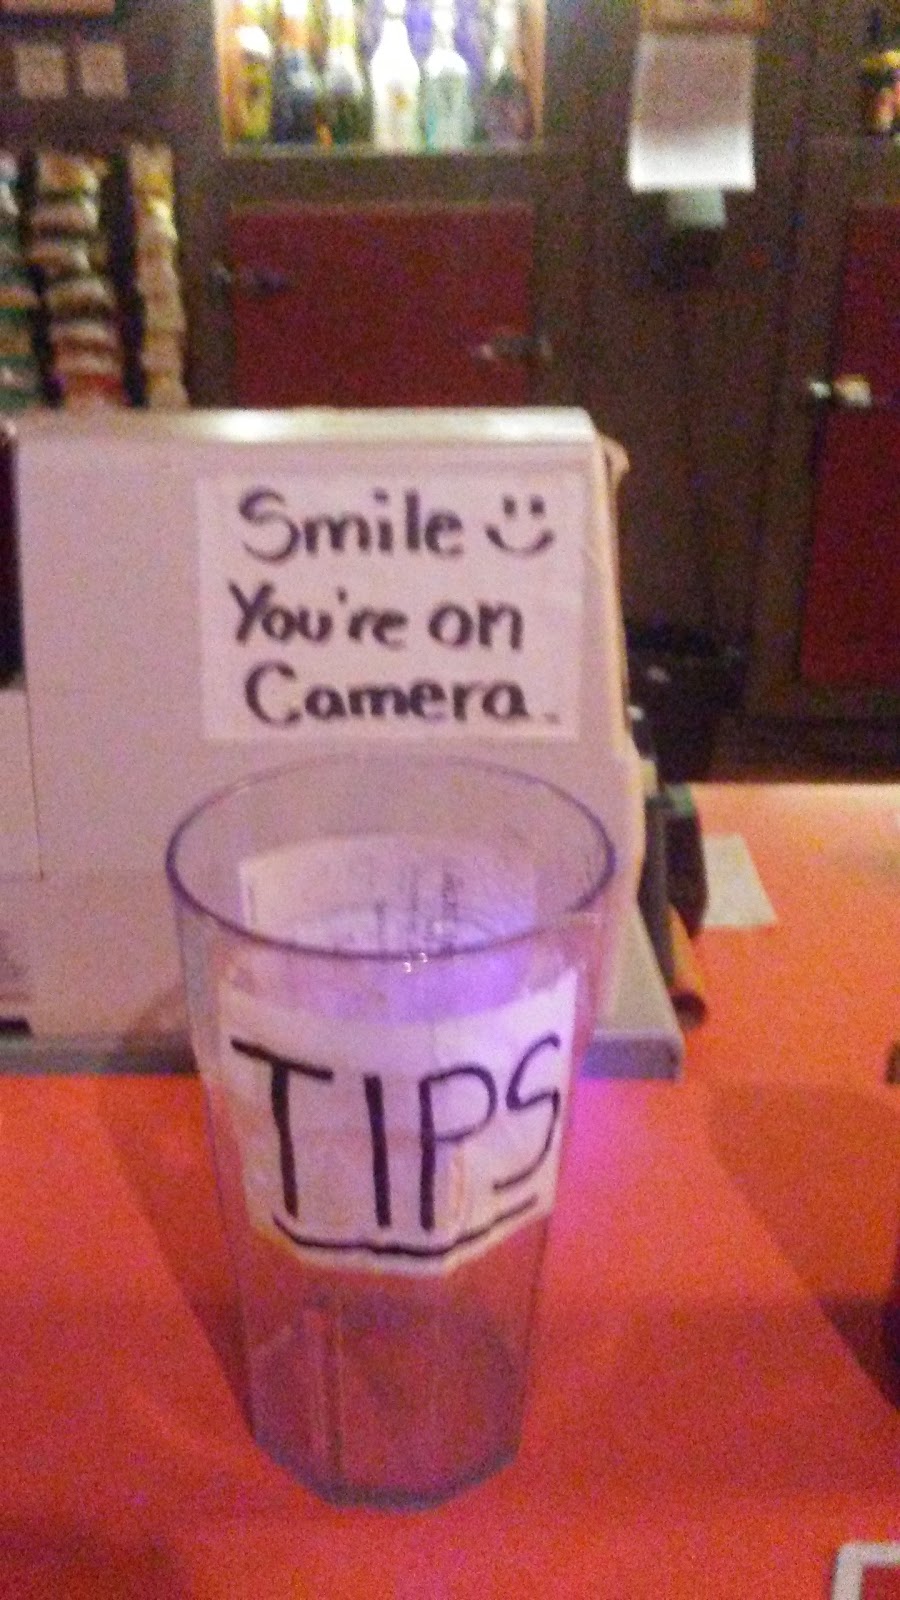 Smile
You're on
Camera.
TIPS